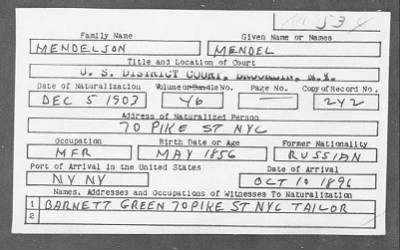 M 534
Family Name Given Name or Names
MENDELSON MENDEL
Title and Location of Court
U. S. DISTRICT COURT, BROOKLYN, N.Y.
Date of Naturalization Volume or Bundle No. Page No. Copy of Record No.
DEC 5 1903 46 — 242
Address of Naturalized Person
70 PIKE ST NYC
Occupation Birth Date or Age Former Nationality
MFR MAY 1856 RUSSIAN
Port of Arrival in the United States Date of Arrival
NY NY OCT 10 1896
Names, Addresses and Occupations of Witnesses To Naturalization
1 BARNETT GREEN 70 PIKE ST NYC TAILOR
2